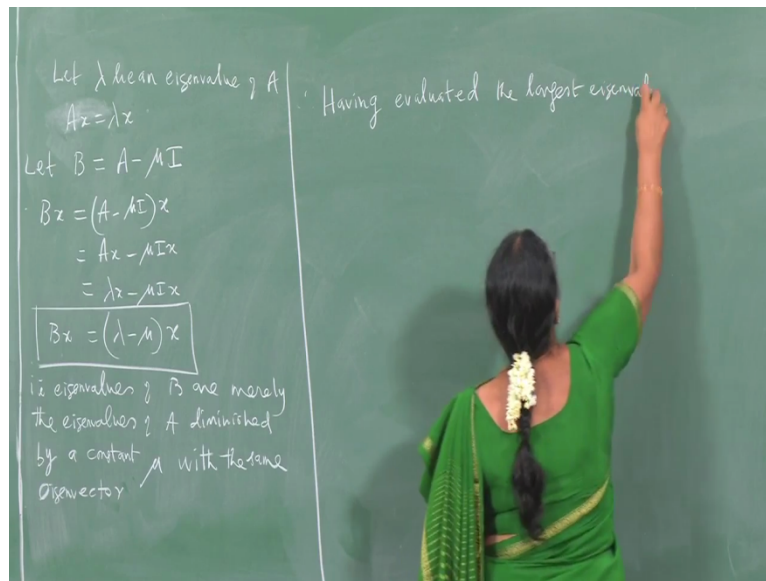 Let λ be an eigenvalue of A
Ax = λx
Let B = A - μI
Bx = (A - μI)x
= Ax - μIx
= λx - μIx
Bx = (λ - μ)x
ie eigenvalues of B are merely
the eigenvalues of A diminished
by a constant μ with the same
eigenvector
∴ Having evaluated the largest eigenval